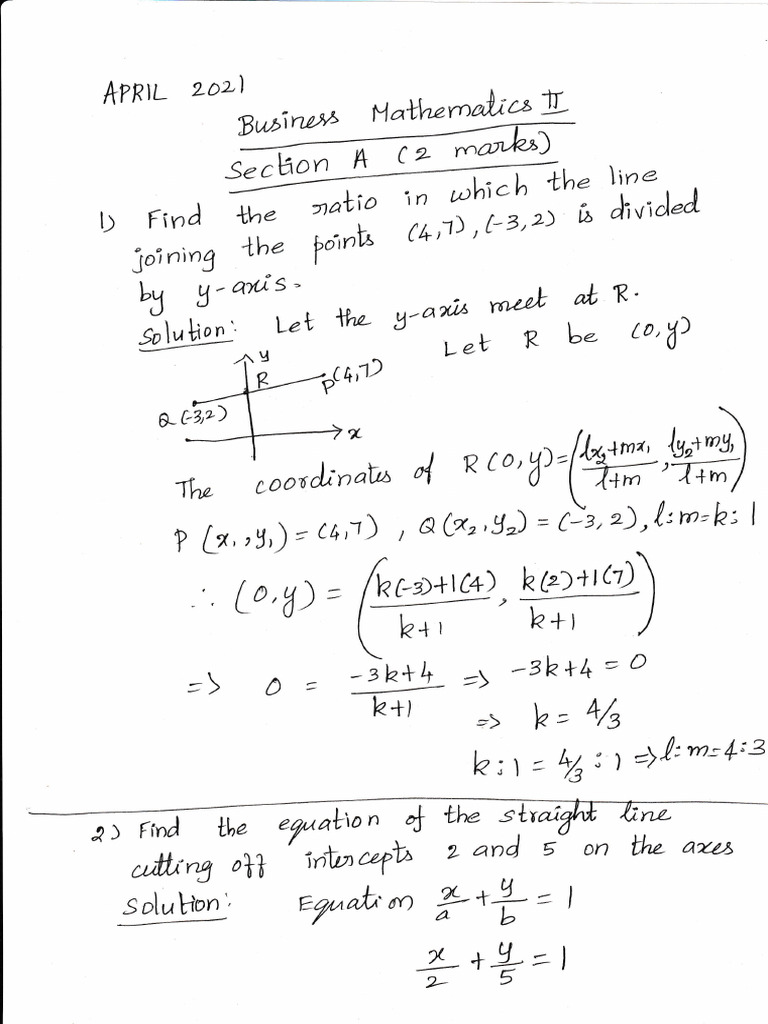 APRIL 2021
Business Mathematics II
Section A (2 marks)
1) Find the ratio in which the line
joining the points (4,7), (-3,2) is divided
by y-axis.
Solution: Let the y-axis meet at R.
Let R be (0,y)
y
R
P(4,7)
Q(-3,2)
x
The coordinates of R(0,y)=((lx₂+mx₁)/(l+m), (ly₂+my₁)/(l+m))
P(x₁,y₁)=(4,7), Q(x₂,y₂)=(-3,2), l:m=k:1
∴ (0,y) = ((k(-3)+1(4))/(k+1), (k(2)+1(7))/(k+1))
=> 0 = (-3k+4)/(k+1) => -3k+4=0
=> k = 4/3
k:1 = 4/3 : 1 => l:m=4:3
2) Find the equation of the straight line
cutting off intercepts 2 and 5 on the axes
Solution: Equation x/a + y/b = 1
x/2 + y/5 = 1